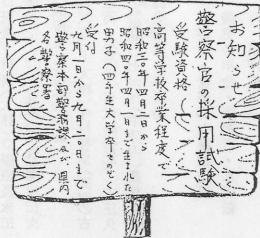 お知らせ
警察官の採用試験
受験資格
高等学校卒業程度、
昭和三〇年四月二日から
昭和四〇年四月一日までに生まれた
男子(四年生大学卒をのぞく)
受付
九月一日から九月二〇日まで
警察本部警務課及び県内
各警察署